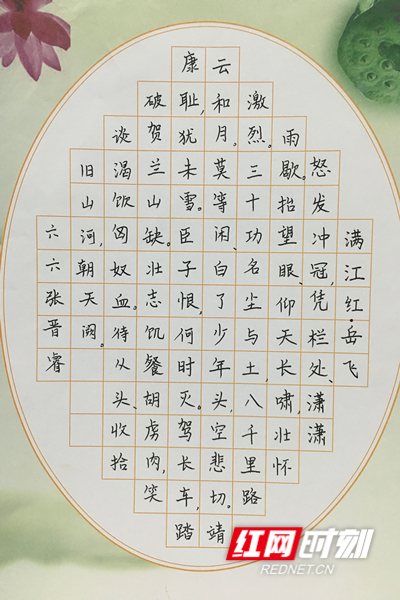 满江红·岳飞
怒发冲冠,凭栏处、潇潇
雨歇。抬望眼、仰天长啸,壮怀
激烈。三十功名尘与土,八千里路
云和月。莫等闲、白了少年头,空悲切。靖
康耻,犹未雪。臣子恨,何时灭。驾长车,踏
破贺兰山缺。壮志饥餐胡虏肉,笑
谈渴饮匈奴血。待从头、收拾
旧山河,朝天阙。
六六张晋睿
红网时刻
REDNET.CN